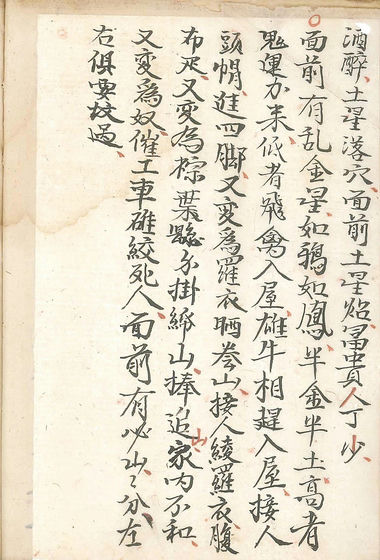 酒醉土星落穴面前土星焰冨貴人丁少
面前有乱金星如鴉如鳳半金半土高者
鬼運力来低者飛禽入屋雄牛相趕入屋接人
頭幘進四脚又變爲羅衣晒卷山接人綾羅衣腹
布疋又變為棕葉懸分掛綿山捧追家内不和
又變爲奴催工車碓絞死人面前有必山ミ分左
右俱要坟過